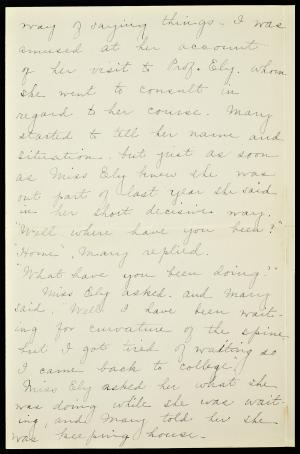 way of saying things. I was
amused at her account
of her visit to Prof. Ely. whom
she went to consult in
regard to her course. Mary
started to tell her name and
situation. but just as soon
as Miss Ely knew she was
out part of last year she said
in her short decisive way.
"Well where have you been?"
"Home", Mary replied.
"What have you been doing?"
Miss Ely asked. and Mary
said. "Well I have been wait-
ing for curvature of the spine
but I got tired of waiting so
I came back to college.
Miss Ely asked her what she
was doing while she was wait-
ing, and Mary told her she
was keeping house.